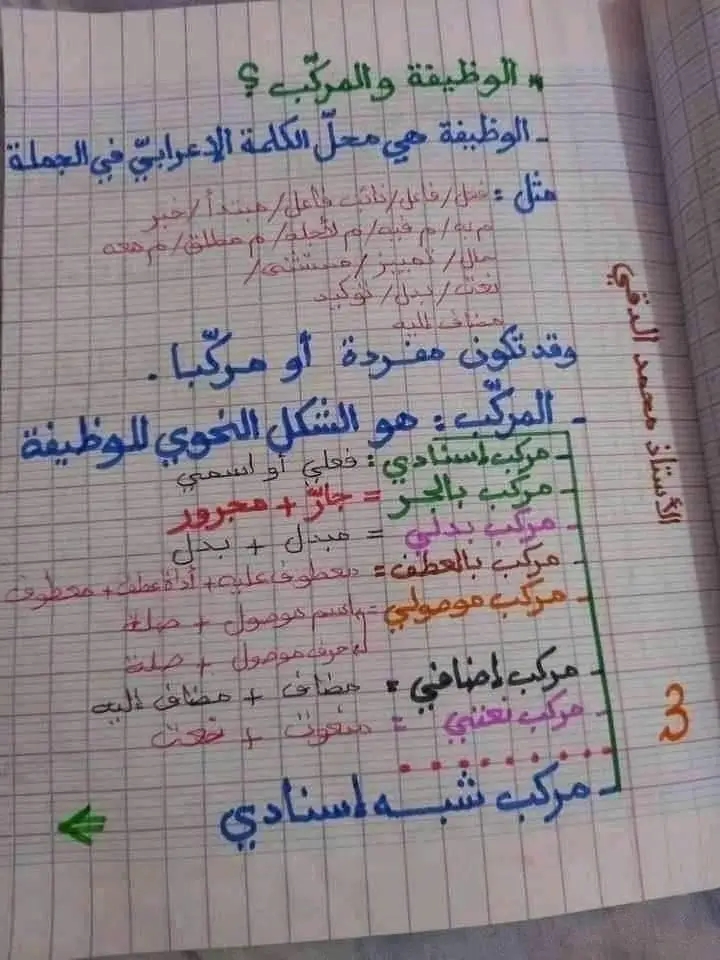 * الوظيفة والمركّب ؟
- الوظيفة هي محلّ الكلمة الإعرابيّ في الجملة
مثل : فعل / فاعل / نائب فاعل / مبتدأ / خبر
م به / م فيه / م لأجله / م مطلق / م معه
حال / تمييز / مستثنى /
نعت / بدل / توكيد
مضاف إليه
وقد تكون مفردة أو مركّبا .
- المركّب : هو الشكل النحوي للوظيفة
- مركب إسنادي : فعلي أو اسمي
- مركب بالجر = جارّ + مجرور
- مركب بدلي = مبدل + بدل
- مركب بالعطف = معطوف عليه + أداة عطف + معطوف
- مركب موصولي = اسم موصول + صلة
حرف موصول + صلة
- مركب إضافي = مضاف + مضاف إليه
- مركب نعتي = منعوت + نعت
- مركب شبه إسنادي
الأستاذ محمد الدقي
3